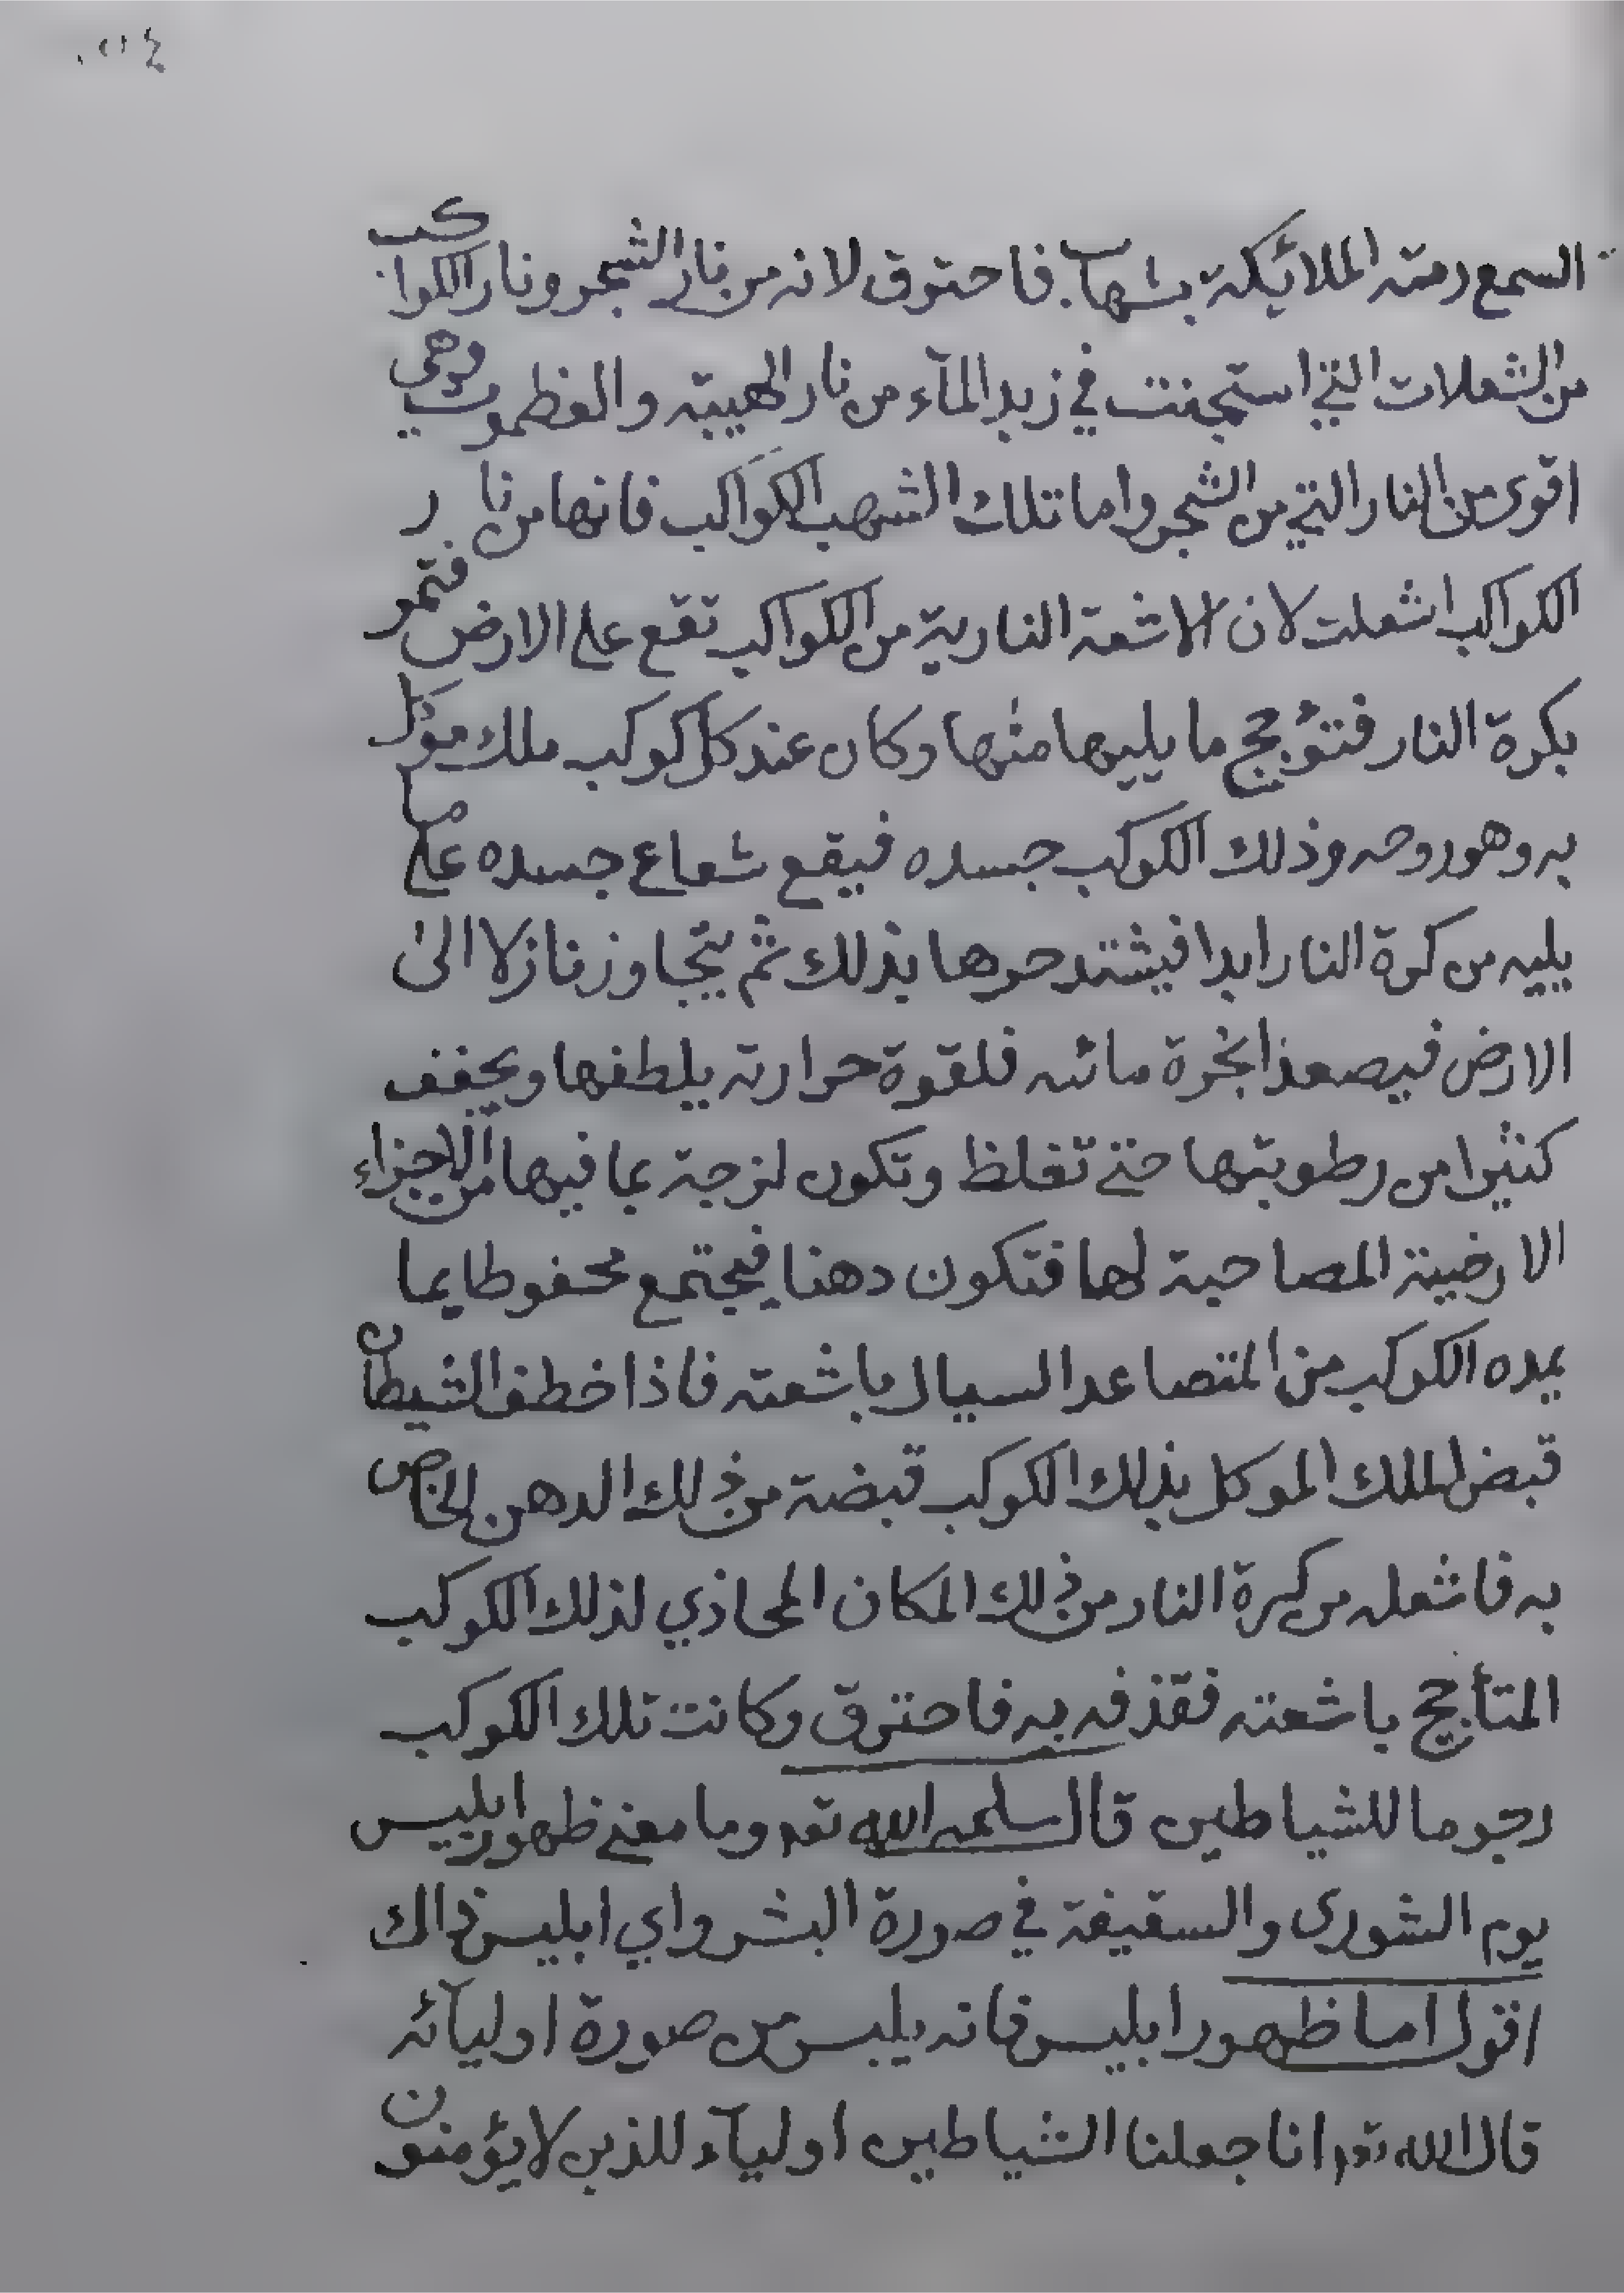 السمع رمته الملائكة بشهاب فاحترق لانه من نار الشجر ونار الكواكب
من الشعلات التي استجنت في زبد المآء من نار الهيبة والعظموت وهي
اقوى من النار التي من الشجر واما تلك الشهب الكواكب فانها من نار
الكواكب اشعلت لان الاشعة النارية من الكواكب تقع على الارض فتمر
بكرة النار فتؤجج ما يليها منها وكان عند كل كوكب ملك موكل
به وهو روحه وذلك الكوكب جسده فيقع شعاع جسده على ما
يليه من كرة النار ابدا فيشتد حرها بذلك ثم يتجاوز نازلا الى
الارض فيصعد ابخرة مائيه فلقوة حرارته يلطفها ويجفف
كثيرا من رطوبتها حتى تغلظ وتكون لزجة بما فيها من الاجزاء
الارضية المصاحبة لها فتكون دهنا فيجتمع محفوظا بما
يمده الكوكب من المتصاعد السيال باشعته فاذا خطف الشيطان
قبض الملك الموكل بذلك الكوكب قبضة من ذلك الدهن الخاص
به فاشعله من كرة النار من ذلك المكان المحاذي لذلك الكوكب
المتأجج باشعته فقذفه به فاحترق وكانت تلك الكوكب
رجوما للشياطين قال سلمه الله تعم وما معنى ظهور ابليس
يوم الشورى والسقيفة في صورة البشر واي ابليس ذاك
اقول اما ظهور ابليس فانه يلبس من صورة اوليآئه
قال الله تعم انا جعلنا الشياطين اوليآء للذين لا يؤمنون